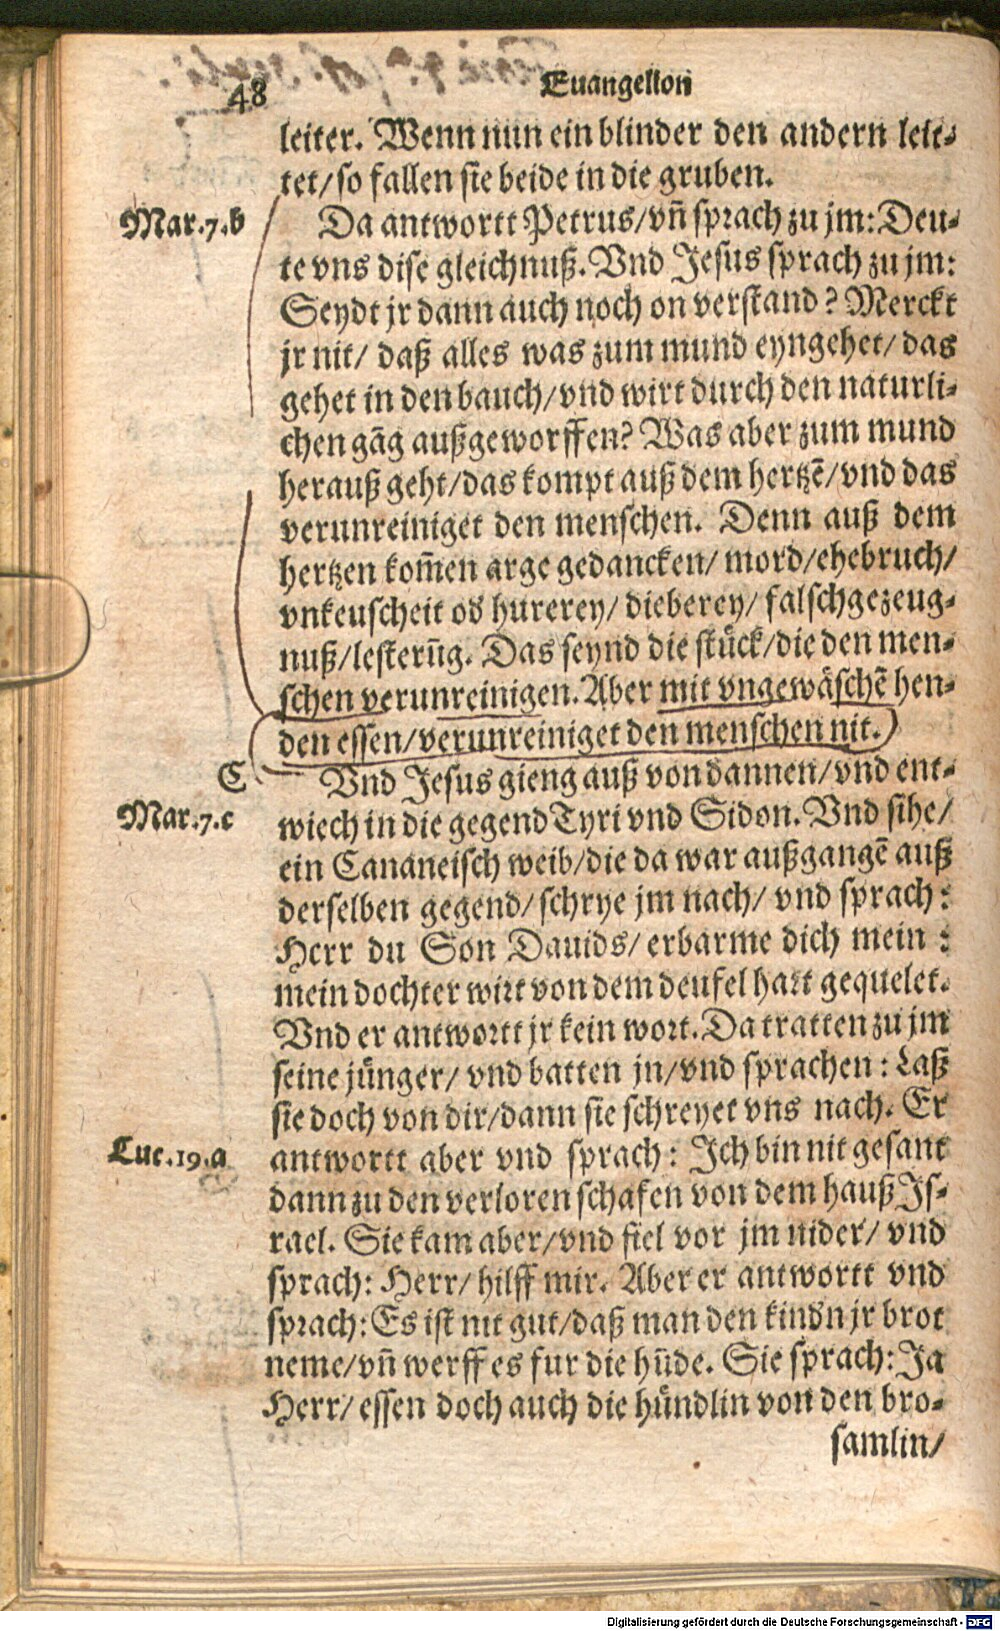 48
Euangelion
leiter. Wenn nun ein blinder den andern lei-
tet/so fallen sie beide in die gruben.
Mar.7.b
Da antwortt Petrus/vñ sprach zu jm: Deu-
te vns dise gleichnuß. Vnd Jesus sprach zu jm:
Seydt jr dann auch noch on verstand? Merckt
jr nit/ daß alles was zum mund eyngehet/ das
gehet in den bauch/vnd wirt durch den naturli-
chen gãg außgeworffen? Was aber zum mund
herauß geht/das kompt auß dem hertzẽ/vnd das
verunreiniget den menschen. Denn auß dem
hertzen kom̃en arge gedancken/ mord/ehebruch/
vnkeuscheit od hurerey/ dieberey/ falschgezeug-
nuß/lesterũg. Das seynd die stück/die den men-
schen verunreinigen. Aber mit vngewäschẽ hen-
den essen/verunreiniget den menschen nit.
C
Vnd Jesus gieng auß von dannen/vnd ent-
Mar.7.c
wiech in die gegend Tyri vnd Sidon. Vnd sihe/
ein Cananeisch weib/die da war außgangẽ auß
derselben gegend/schrye jm nach/ vnd sprach:
Herr du Son Dauids/ erbarme dich mein :
mein dochter wirt von dem deufel hart gequelet.
Vnd er antwortt jr kein wort. Da tratten zu jm
seine jünger/ vnd batten jn/vnd sprachen: Laß
sie doch von dir/dann sie schreyet vns nach. Er
Luc.19.a
antwortt aber vnd sprach: Ich bin nit gesant
dann zu den verloren schafen von dem hauß Is-
rael. Sie kam aber/vnd fiel vor jm nider/ vnd
sprach: Herr/ hilff mir. Aber er antwortt vnd
sprach: Es ist nit gut/daß man den kindn jr brot
neme/vñ werff es fur die hũde. Sie sprach: Ja
Herr/ essen doch auch die hündlin von den bro-
samlin/
Digitalisierung gefördert durch die Deutsche Forschungsgemeinschaft - DFG